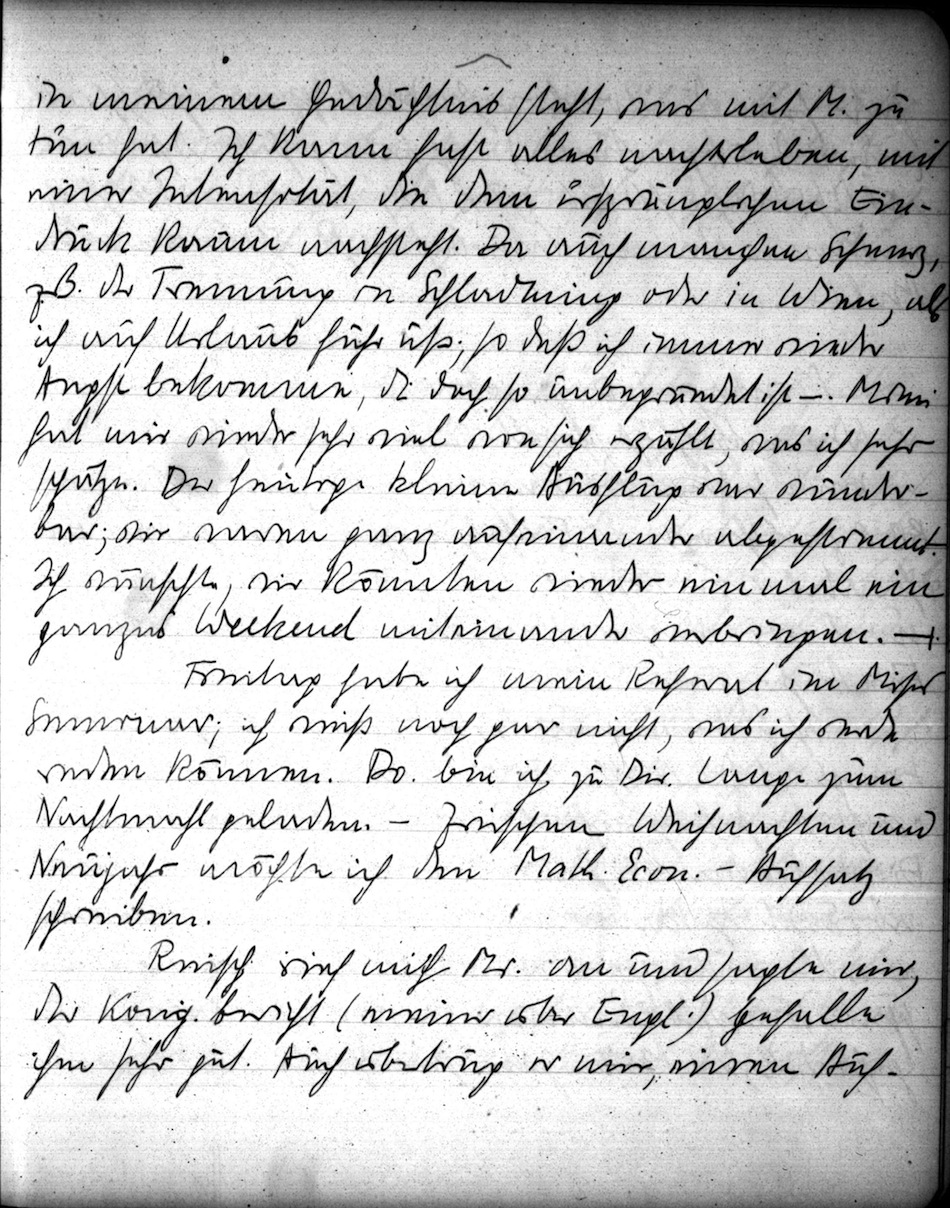 in meinem Gedächtnis steht, was mit M. zu
tun hat. Ich kann fast alles nacherleben, mit
einer Intensität, die dem ursprünglichen Ein-
druck kaum nachsteht. Da auch manchen Schmerz,
zB. der Trennung in Schladming oder in Wien, als
ich auf Urlaub fuhr usf.; so daß ich immer wieder
Angst bekomme, die doch so unbegründet ist –.
hat mir wieder sehr viel von sich erzählt, was ich sehr
schätze. Der heutige kleine Ausflug war wunder-
bar; wir waren ganz aufeinander abgestimmt.
Ich wünschte, wir könnten wieder einmal ein
ganzes Weekend miteinander verbringen. –
Freitag habe ich mein Referat im Mises
Seminar; ich weiß noch gar nicht, was ich werde
reden können. Do. bin ich zu Dir. Lange zum
Nachtmahl geladen. – Zwischen Weihnachten und
Neujahr möchte ich den Math. Econ. – Aufsatz
schreiben.
Reisch rief mich an und sagte mir,
der Konj. bericht (meiner über Engl.) gefalle
ihm sehr gut. Auch übertrug er mir, einen Auf-